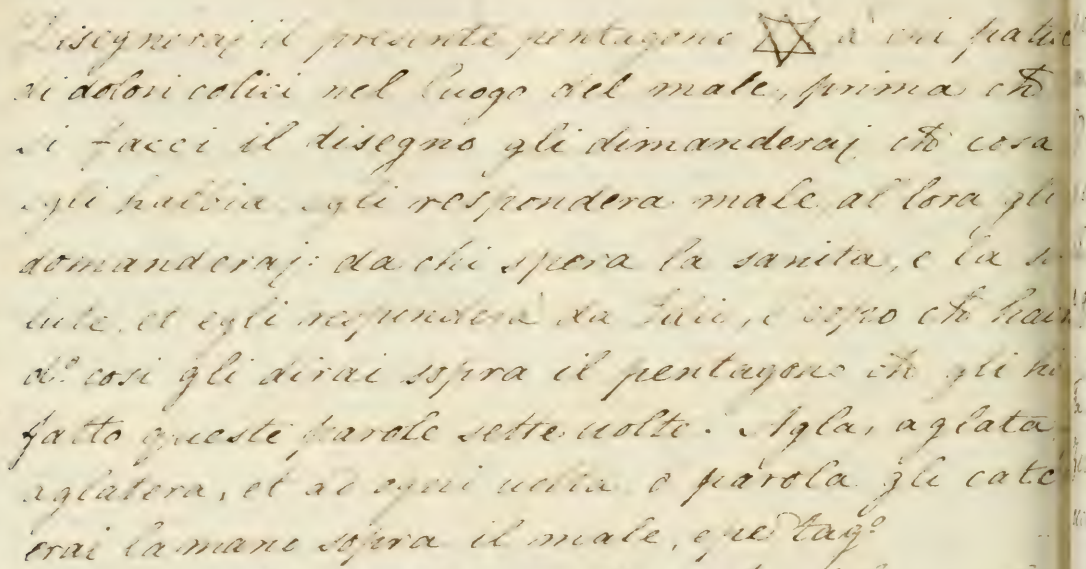 Disegneraj il presente pentagono ✡ a chi patis
di dolori colici nel luogo del male, prima ch̄
si facci il disegno gli dimanderaj ch̄ cosa
egli habbia egli respondera male al lora gli
domanderaj: da chi spera la sanita, e la s
lute, et egli respundera da Lui, e dopo ch̄
d.º cosi gli dirai sopra il pentagono ch̄ gli
fatto queste parole sette uolte. Agla, aglata
aglatera, et ad ogni uolta o parola gli calc
erai la mano sopra il male, e pe'tag.º